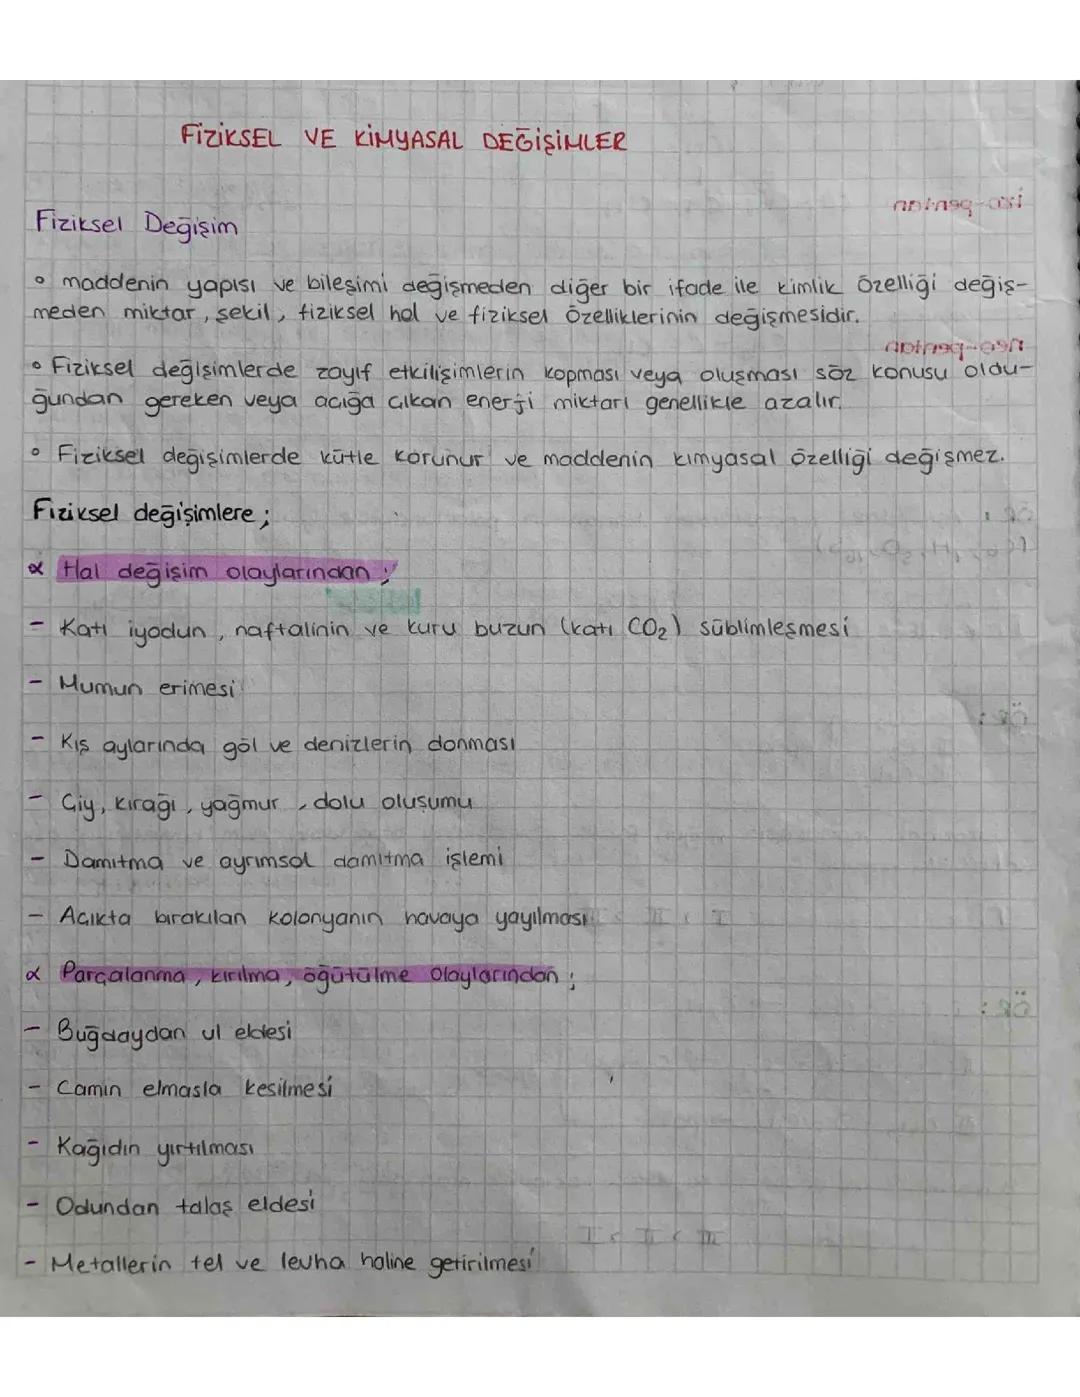 FİZİKSEL VE KİMYASAL DEĞİŞİMLER
Fiziksel Değişim
• maddenin yapısı ve bileşimi değişmeden diğer bir ifade ile kimlik özelliği değiş-
meden miktar, şekil, fiziksel hal ve fiziksel özelliklerinin değişmesidir.
• Fiziksel değişimlerde zayıf etkilişimlerin kopması veya oluşması söz konusu oldu-
ğundan gereken veya açığa çıkan enerji miktarı genellikle azalır.
• Fiziksel değişimlerde kütle korunur ve maddenin kimyasal özelliği değişmez.
Fiziksel değişimlere;
α Hal değişim olaylarından;
- Katı iyodun, naftalinin ve kuru buzun (katı CO₂) süblimleşmesi
- Mumun erimesi
- Kış aylarında göl ve denizlerin donması
- Çiy, kırağı, yağmur, dolu oluşumu
- Damıtma ve ayrımsal damıtma işlemi
- Açıkta bırakılan kolonyanın havaya yayılması
α Parçalanma, kırılma, öğütülme olaylarından;
- Buğdaydan ul eldesi
- Camın elmasla kesilmesi
- Kağıdın yırtılması
- Odundan talaş eldesi
- Metallerin tel ve levha haline getirilmesi